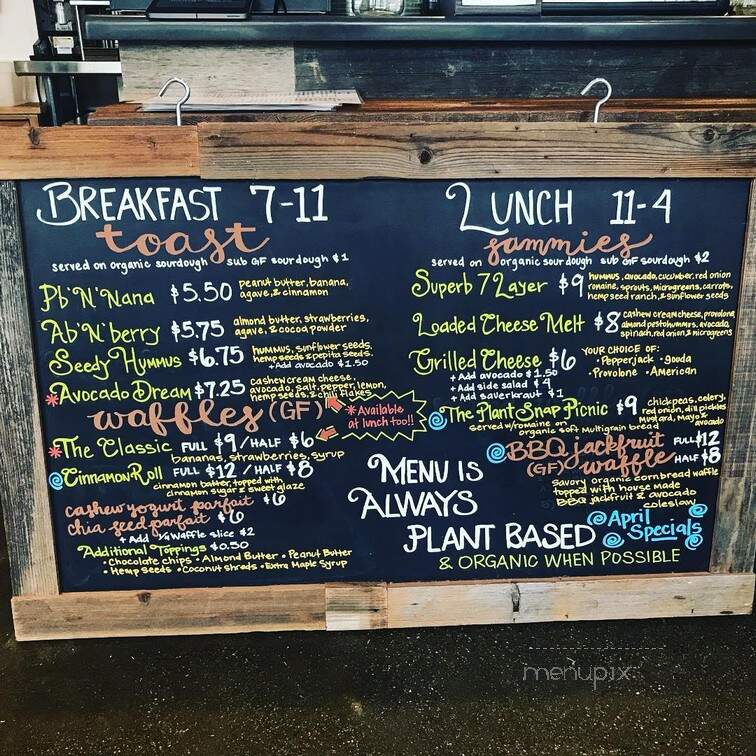 BREAKFAST 7-11
toast
served on organic sourdough sub GF sourdough $1
Pb'N'Nana $5.50 peanut butter, banana,
agave, & cinnamon
Ab'N'berry $5.75 almond butter, strawberries,
agave, & cocoa powder
Seedy Hummus $6.75 hummus, sunflower seeds,
hemp seeds & pepita seeds.
+ Add avocado $1.50
*Avocado Dream $7.25 cashew cream cheese,
avocado, salt, pepper, lemon,
hemp seeds, & chili flakes
waffles (GF)
*Available
at lunch too!!
*The Classic FULL $9/HALF $6
bananas, strawberries, syrup
@Cinnamon Roll FULL $12/HALF $8
cinnamon batter, topped with
cinnamon sugar & sweet glaze
cashew yogurt parfait $6
chia seed parfait $6
+ Add 1/4 waffle slice $2
Additional Toppings $0.50
• Chocolate chips • Almond Butter • Peanut Butter
• Hemp Seeds • Coconut shreds • Extra Maple Syrup
LUNCH 11-4
sammies
served on organic sourdough sub GF sourdough $2
Superb 7 Layer $9 hummus, avocado, cucumber, red onion
romaine, sprouts, microgreens, carrots,
hemp seed ranch, & sunflower seeds
Loaded Cheese Melt $8 cashew cream cheese, provolone,
almond pesto hummus, avocado,
spinach, red onion, & microgreens
Grilled Cheese $6 YOUR CHOICE OF:
• Pepperjack • gouda
• Provolone • American
+ Add avocado $1.50
+ Add side salad $4
+ Add sauerkraut $1
@The Plant Snap Picnic $9 chickpeas, celery,
red onion, dill pickles
mustard, mayo, &
avocado
served w/romaine on
organic soft multigrain bread
@BBQ jackfruit FULL $12
(GF) waffle HALF $8
Savory organic cornbread waffle
topped with house made
BBQ jackfruit & avocado
coleslaw
MENU IS
ALWAYS
PLANT BASED
& ORGANIC WHEN POSSIBLE
@April
Specials@
menupix